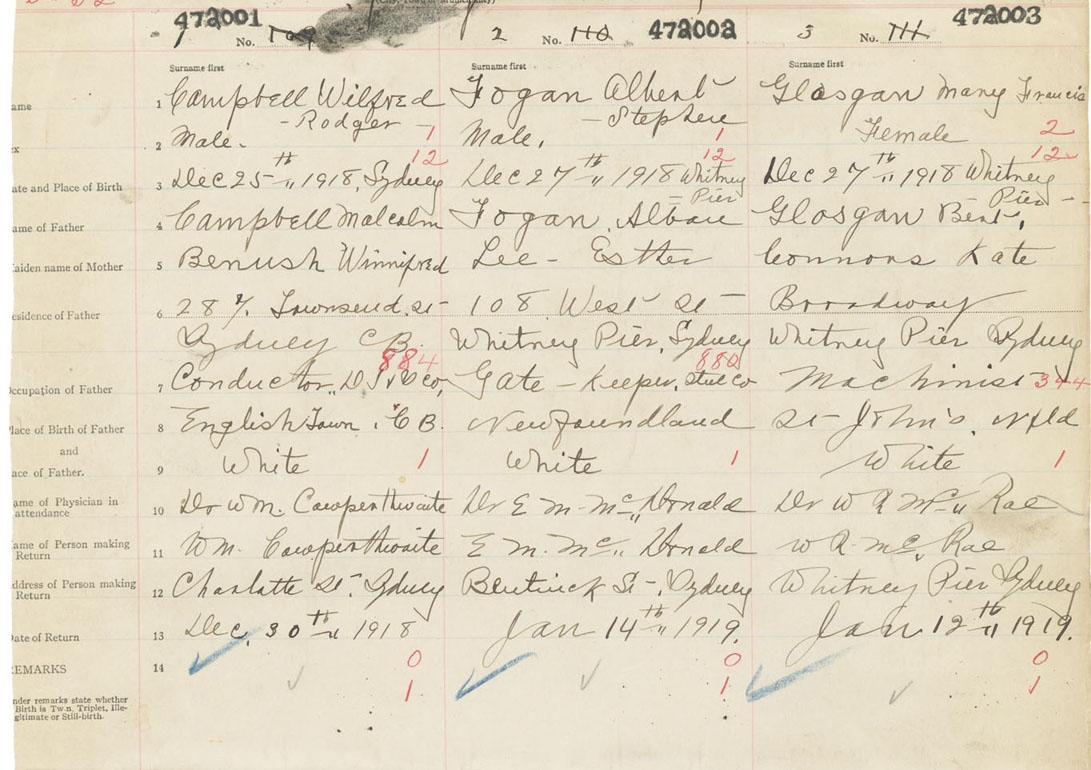 (City, Town or Municipality)
472001 472002 472003
1 No. 109 2 No. 110 3 No. 111
Surname first Surname first Surname first
ame 1 Campbell Wilfred Fogan Albert Glasgan Mary Francis
- Rodger - 1 - Stephen 1
ex 2 Male. Male. Female 2
12 12 12
ate and Place of Birth 3 Dec 25th „ 1918, Sydney Dec 27th „ 1918 Whitney Pier Dec 27th „ 1918 Whitney Pier -
ame of Father 4 Campbell Malcolm Fogan, Alban Glasgan Bert,
aiden name of Mother 5 Benush Winnifred Lee - Esther Connors Kate
esidence of Father 6 287. Townsend. St 108 West St - Broadway
Sydney C B. Whitney Pier, Sydney Whitney Pier Sydney
884 880
Occupation of Father 7 Conductor, Co, Gate - Keeper, Steel Co Machinist 344
lace of Birth of Father 8 English Town, C B. Newfoundland St John's, Nfld
and
ace of Father. 9 White 1 White 1 White 1
ame of Physician in attendance 10 Dr Wm. Cowperthwaite Dr E M. Mc„ Donald Dr W R Mc„ Rae
ame of Person making Return 11 Wm. Cowperthwaite E M. Mc„ Donald W R. Mc„ Rae
ddress of Person making Return 12 Charlotte St. Sydney Bentinck St -, Sydney Whitney Pier Sydney
ate of Return 13 Dec, 30th „ 1918 Jan 14th „ 1919. Jan 12th „ 1919.
EMARKS 14 0 0 0
nder remarks state whether 1 1 1
Birth is Twin, Triplet, Ille-
gitimate or Still-birth.